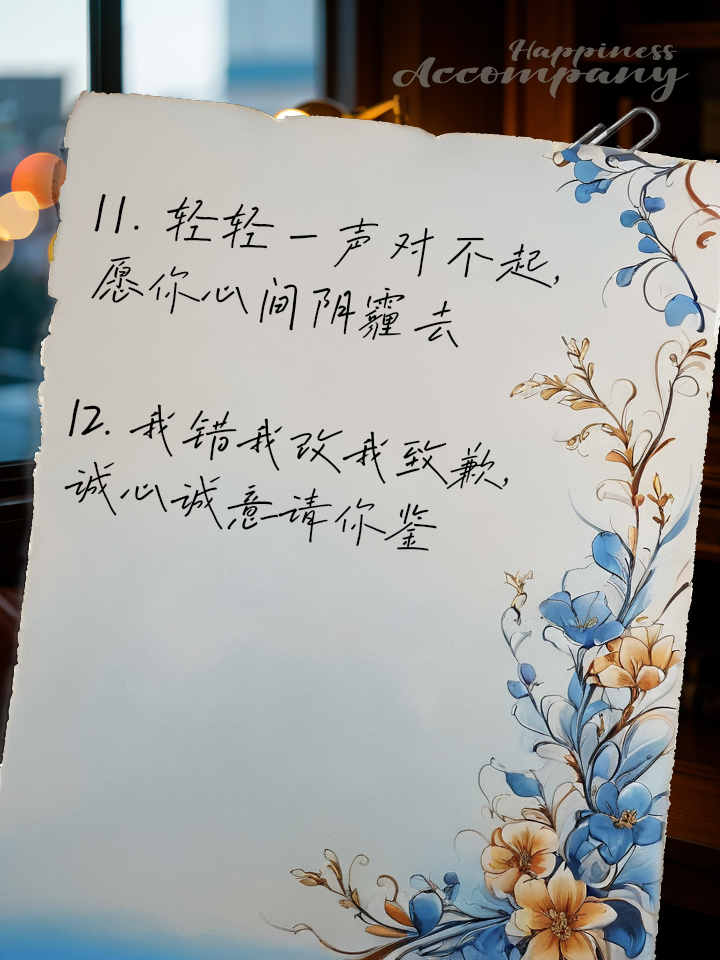 Happiness
Accompany
11. 轻轻一声对不起,
愿你心间阴霾去
12. 我错我改我致歉,
诚心诚意请你鉴